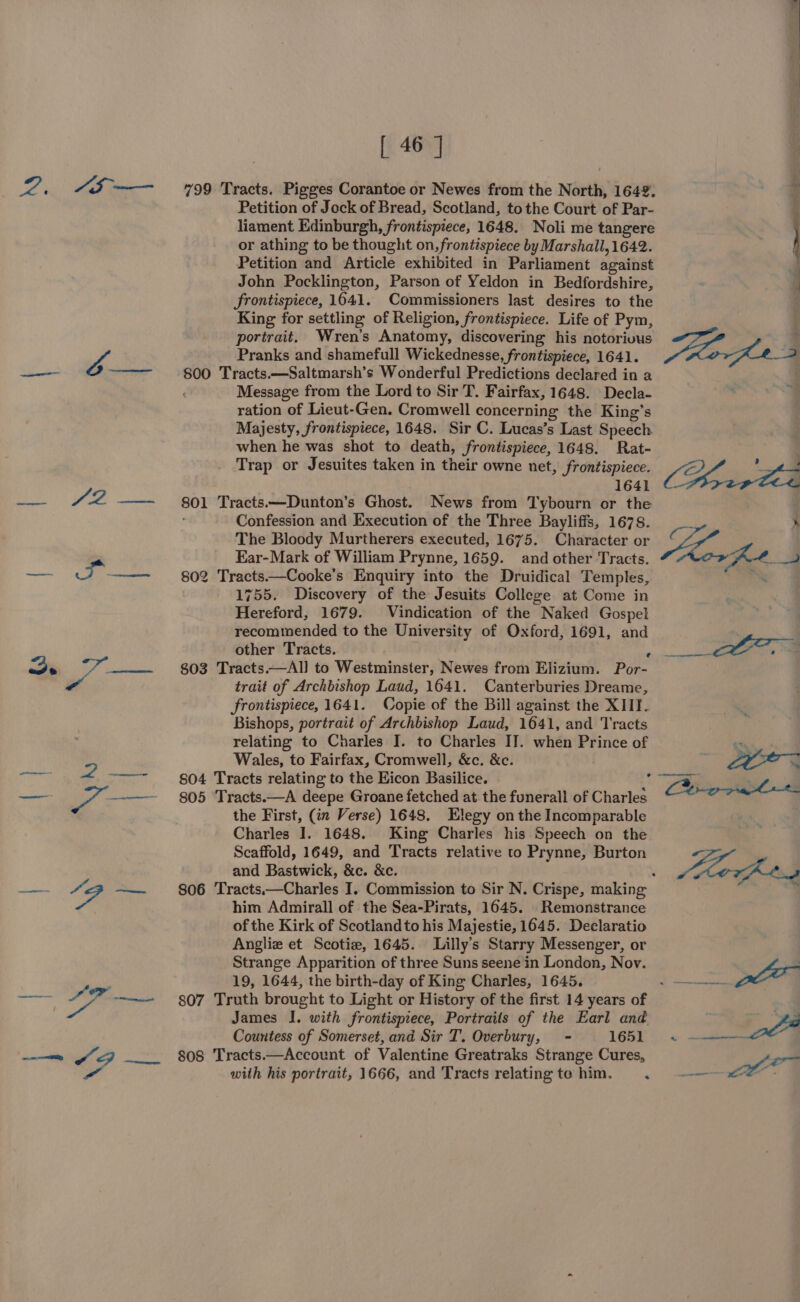 [ 46 ]
2. 15 — 799 Tracts. Pigges Corantoe or Newes from the North, 1642.
Petition of Jock of Bread, Scotland, to the Court of Par-
liament Edinburgh, frontispiece, 1648. Noli me tangere
or athing to be thought on, frontispiece by Marshall, 1642.
Petition and Article exhibited in Parliament against
John Pocklington, Parson of Yeldon in Bedfordshire,
frontispiece, 1641. Commissioners last desires to the
King for settling of Religion, frontispiece. Life of Pym,
portrait. Wren's Anatomy, discovering his notorious
Pranks and shamefull Wickednesse, frontispiece, 1641.
— 6 — 800 Tracts.—Saltmarsh's Wonderful Predictions declared in a
Message from the Lord to Sir T. Fairfax, 1648. Decla-
ration of Lieut-Gen. Cromwell concerning the King's
Majesty, frontispiece, 1648. Sir C. Lucas's Last Speech
when he was shot to death, frontispiece, 1648. Rat-
Trap or Jesuites taken in their owne net, frontispiece.
1641
— 12 — 801 Tracts.—Dunton's Ghost. News from Tybourn or the
Confession and Execution of the Three Bayliffs, 1678.
The Bloody Murtherers executed, 1675. Character or
Ear-Mark of William Prynne, 1659. and other Tracts.
— 5 — 802 Tracts.—Cooke's Enquiry into the Druidical Temples,
1755. Discovery of the Jesuits College at Come in
Hereford, 1679. Vindication of the Naked Gospel
recommended to the University of Oxford, 1691, and
other Tracts.
3. 7 — 803 Tracts.—All to Westminster, Newes from Elizium. Por-
trait of Archbishop Laud, 1641. Canterburies Dreame,
frontispiece, 1641. Copie of the Bill against the XIII.
Bishops, portrait of Archbishop Laud, 1641, and Tracts
relating to Charles I. to Charles II. when Prince of
Wales, to Fairfax, Cromwell, &c. &c.
— 2 — 804 Tracts relating to the Eicon Basilice.
— 7 — 805 Tracts.—A deepe Groane fetched at the funerall of Charles
the First, (in Verse) 1648. Elegy on the Incomparable
Charles I. 1648. King Charles his Speech on the
Scaffold, 1649, and Tracts relative to Prynne, Burton
and Bastwick, &c. &c.
— 19 — 806 Tracts.—Charles I. Commission to Sir N. Crispe, making
him Admirall of the Sea-Pirats, 1645. Remonstrance
of the Kirk of Scotland to his Majestie, 1645. Declaratio
Angliæ et Scotiæ, 1645. Lilly's Starry Messenger, or
Strange Apparition of three Suns seene in London, Nov.
19, 1644, the birth-day of King Charles, 1645.
807 Truth brought to Light or History of the first 14 years of
James I. with frontispiece, Portraits of the Earl and
Countess of Somerset, and Sir T. Overbury, - 1651
— 19 — 808 Tracts.—Account of Valentine Greatraks Strange Cures,
with his portrait, 1666, and Tracts relating to him.